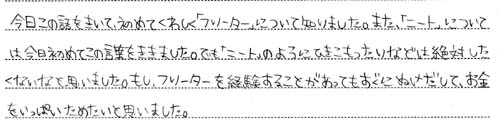 今日この話をきいて、初めてくわしく「フリーター」について知りました。また、「ニート」について
は、今日初めてこの言葉をききました。でも「ニート」のようにひきこもったりなどは絶対した
くないなと思いました。もし、フリーターを経験することがあってもすぐにぬけだして、お金
をいっぱいためたいと思いました。